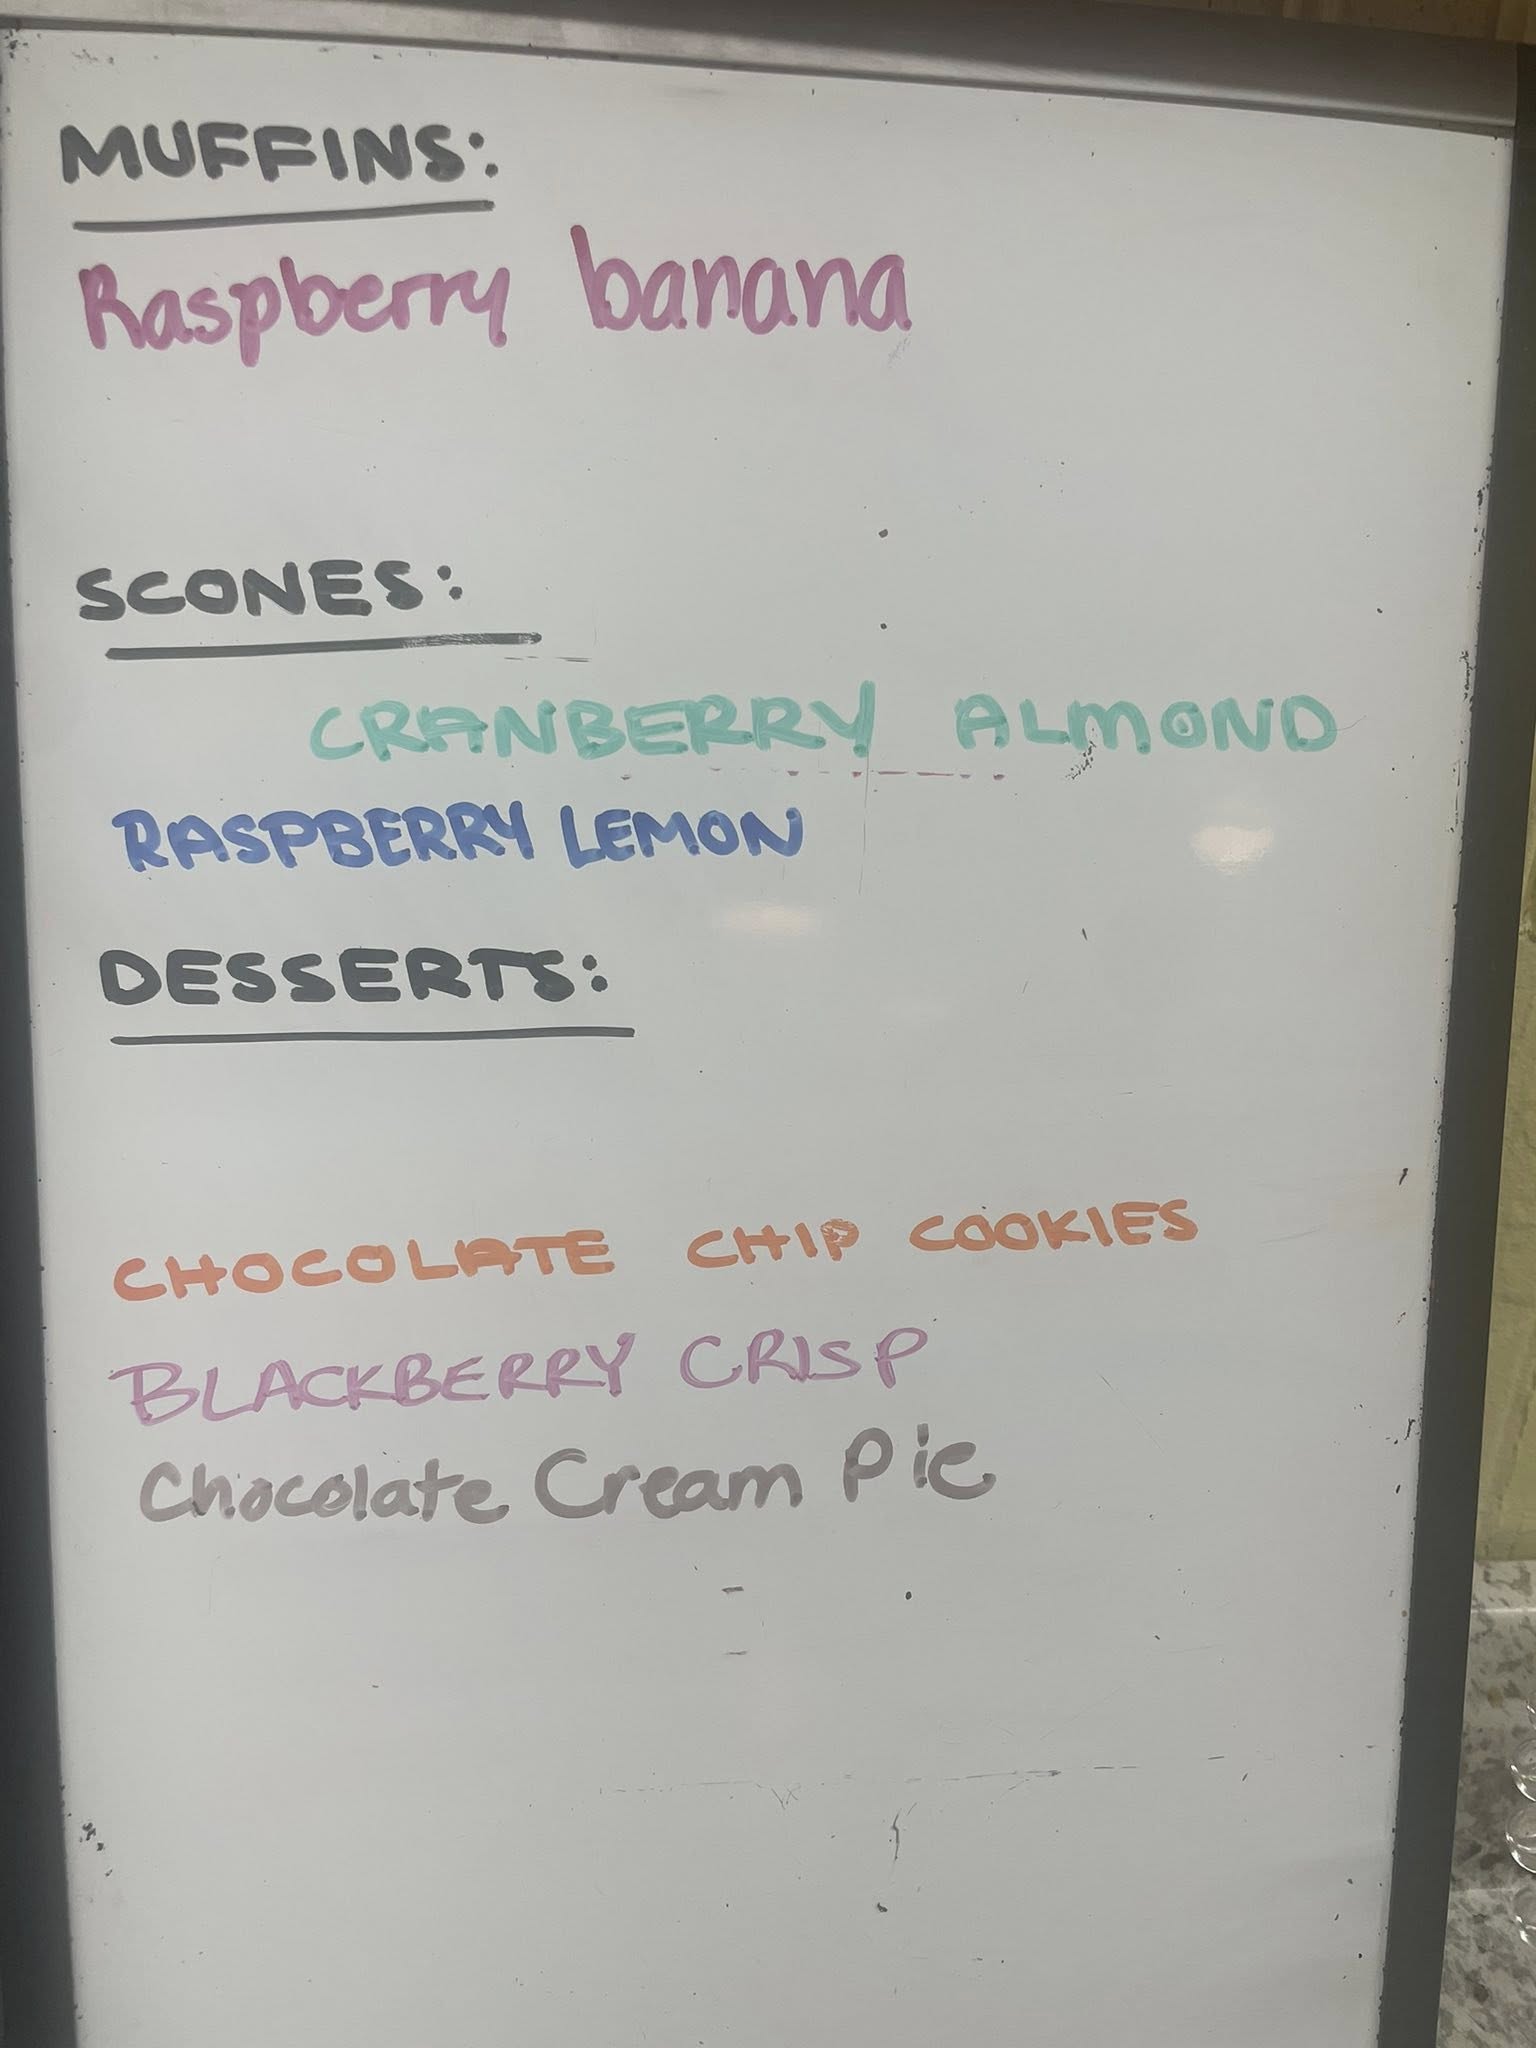 MUFFINS:
Raspberry banana
SCONES:
CRANBERRY ALMOND
RASPBERRY LEMON
DESSERTS:
CHOCOLATE CHIP COOKIES
BLACKBERRY CRISP
Chocolate Cream Pie